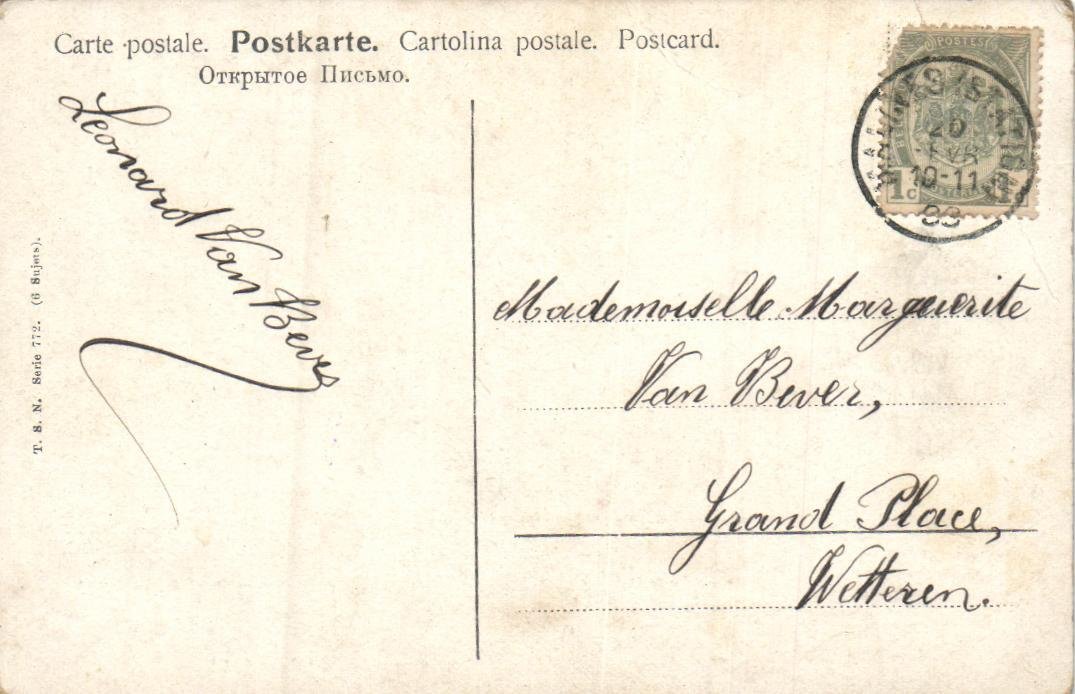 Carte postale. Postkarte. Cartolina postale. Postcard.
Открытое Письмо.
Leonard Van Bever
T. S. N. Serie 772. (6 Sujets).
POSTES
20
10-11
1c
Mademoiselle Marguerite
Van Bever,
Grand Place,
Wetteren.